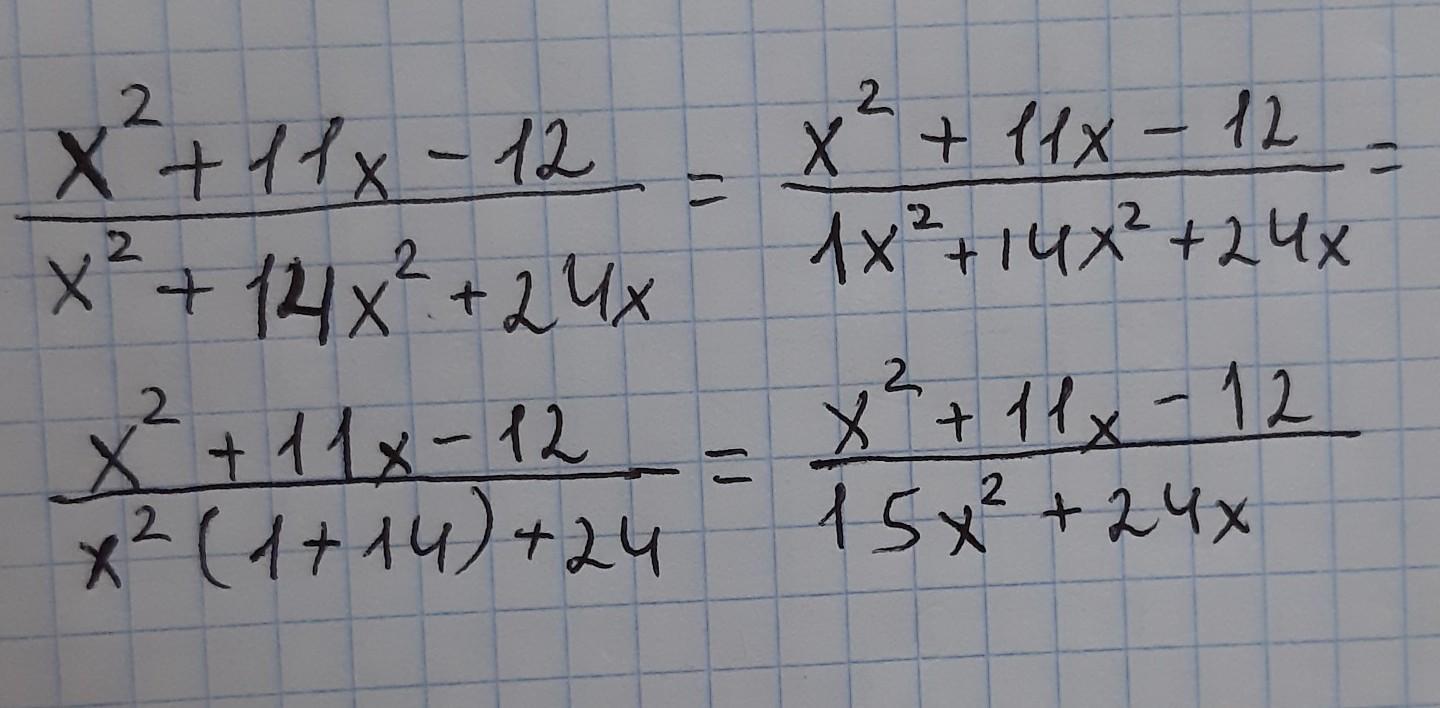 x² + 11x - 12 / x² + 14x² + 24x = x² + 11x - 12 / 1x² + 14x² + 24x =
x² + 11x - 12 / x² (1 + 14) + 24 = x² + 11x - 12 / 15x² + 24x